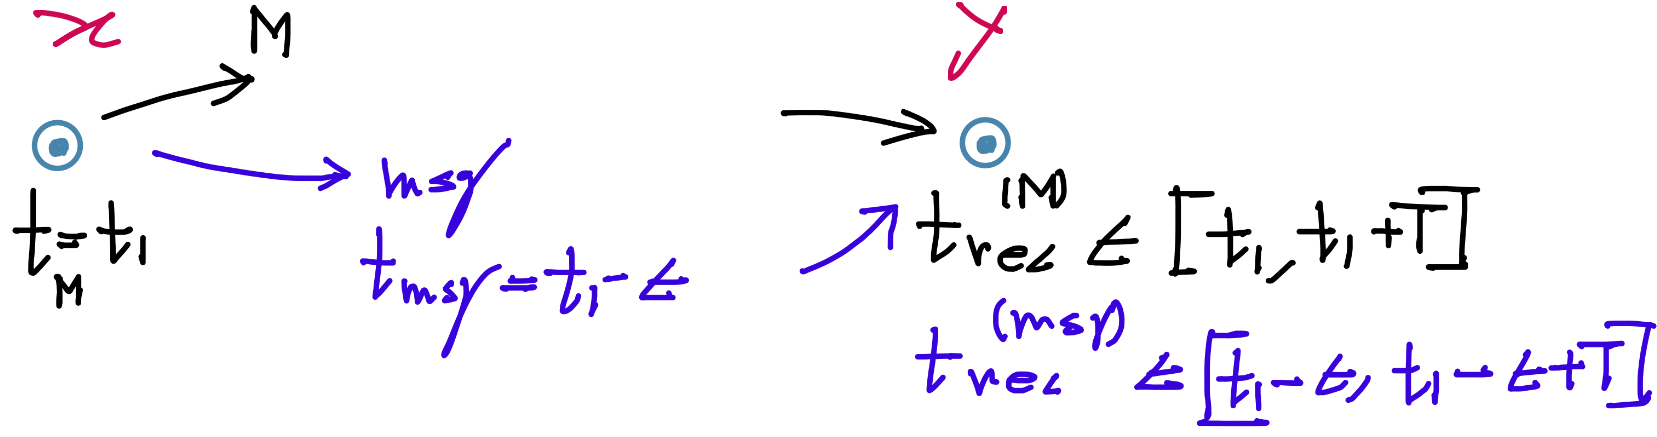 x
y
M
msg
t_M = t₁
t_msg = t₁ - ε
t_rec^(M) ∈ [t₁, t₁ + T]
t_rec^(msg) ∈ [t₁ - ε, t₁ - ε + T]